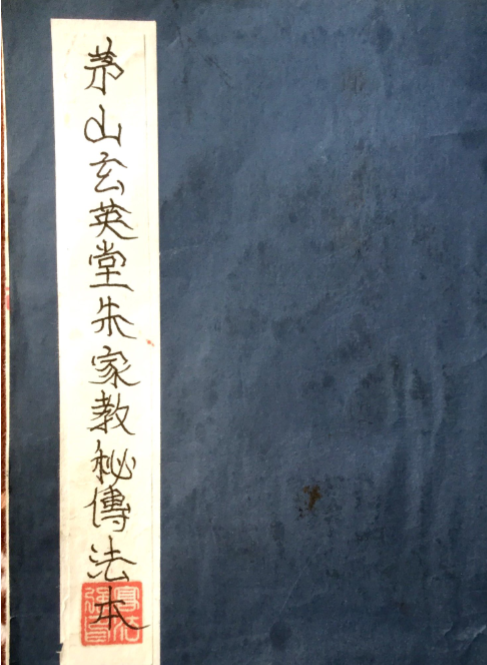 茅山玄英堂朱家教秘傳法本